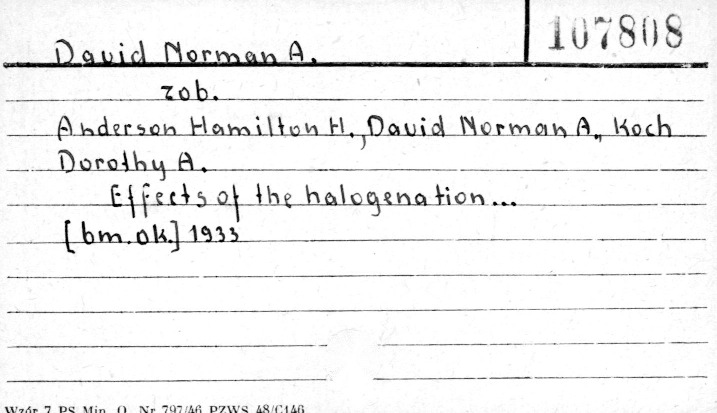 107808
David Norman A.
zob.
Anderson Hamilton H., David Norman A., Koch
Dorothy A.
Effects of the halogenation...
[bm.ok.] 1933
Wzór 7 PS Min. O. Nr 797/46 PZWS 48/C146